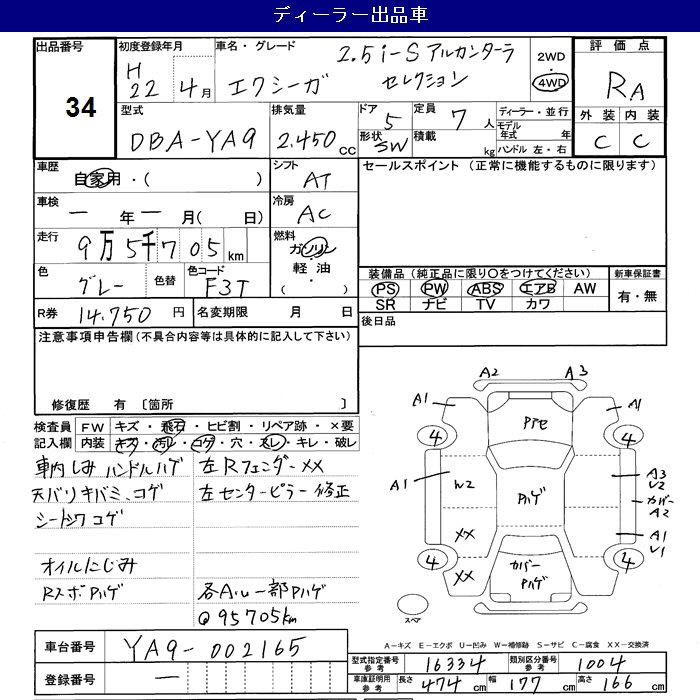 ディーラー出品車
出品番号 34
初度登録年月 H22 4月
車名・グレード エクシーガ 2.5i-S アルカンターラ セレクション
2WD 4WD
評価点 RA
外装 内装
C C
型式 DBA-YA9
排気量 2.450 cc
ドア 5
形状 SW
定員 7 人
積載 kg
ディーラー・並行
モデル年式 年
ハンドル 左・右
車歴 自家用・( )
シフト AT
セールスポイント (正常に機能するものに限ります)
車検 ー 年 ー 月( 日)
冷房 AC
走行 9万5千705km
燃料 ガソリン 軽油 ( ・ )
色 グレー 色替
色コード F3T
装備品(純正品に限り○をつけてください)
PS PW ABS エアB AW
SR ナビ TV カワ
新車保証書 有・無
R券 14.750 円
名変期限 月 日
後日品
注意事項申告欄(不具合内容等は具体的に記入して下さい)
修復歴 有 〔箇所 〕
検査員記入欄
FW キズ・飛石・ヒビ割・リペア跡・×要
内装 キズ・汚レ・コゲ・穴・スレ・キレ・破レ
車内しみ ハンドルハゲ
左Rフェンダー××
天バリキバミ、コゲ
左センターピラー修正
シートシワ コゲ
オイルにじみ
RスポPハゲ
各Aルー部Pハゲ
Q95705km
A2 A3
A1 A1
Pアセ
4 4
A1 W2 Pハゲ A3 V2
カバー A2
×× A1 V1
4 ×× カバー Pハゲ 4
スペア
A-キズ E-エクボ U-凹み W-補修跡 S-サビ C-腐食 XX-交換済
車台番号 YA9-002165
登録番号 ー
型式指定番号 参考 16334
類別区分番号 参考 1004
車庫証明用 参考 長さ 474 cm 幅 177 cm 高さ 166 cm